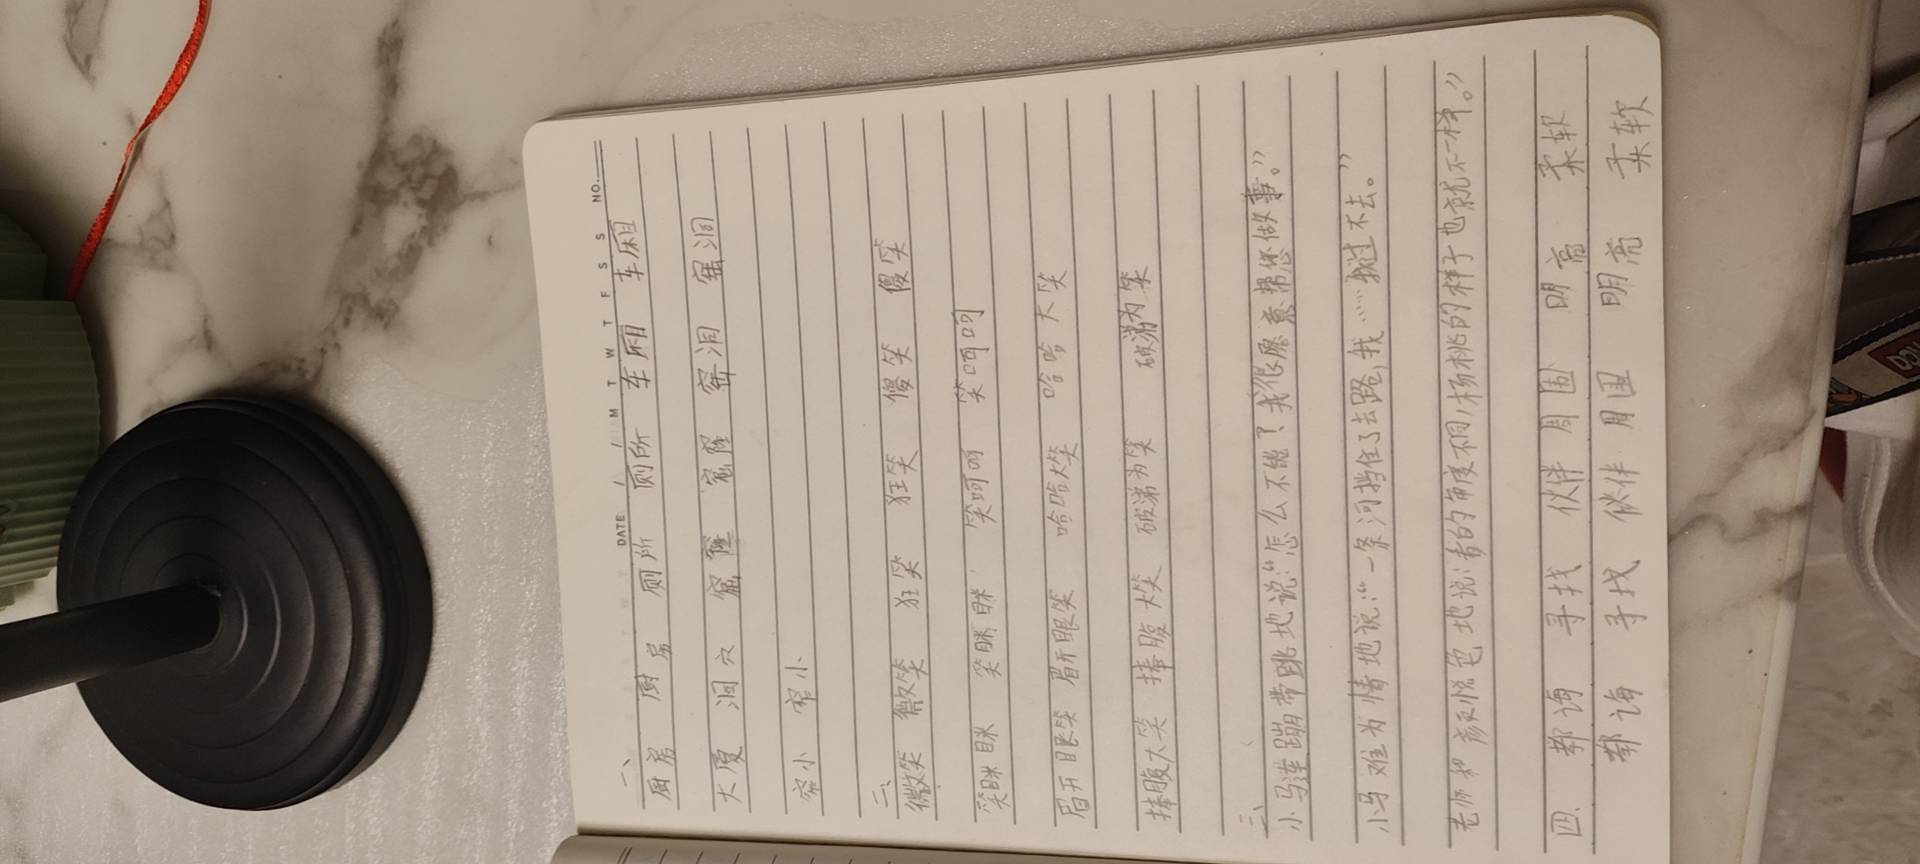 DATE / / M T W T F S S NO.
一、
厨房 厨房 厕所 厕所 车厢 车厢
大厦 洞穴 窟窿 窟窿 窑洞 窑洞
窄小 窄小
二、
微笑 微笑 狂笑 狂笑 傻笑 傻笑
笑眯眯 笑眯眯 笑呵呵 笑呵呵
眉开眼笑 眉开眼笑 哈哈大笑 哈哈大笑
捧腹大笑 捧腹大笑 破涕为笑 破涕为笑
三、
小马连蹦带跳地说:“怎么不能?我很愿意帮您做事。”
小马难为情地说:“一条河挡住了去路,我……我过不去。”
老师和颜悦色地说:看的角度不同,杨桃的样子也就不一样。”
四. 教诲 寻找 伙伴 周围 明亮 柔软
教诲 寻找 伙伴 周围 明亮 柔软